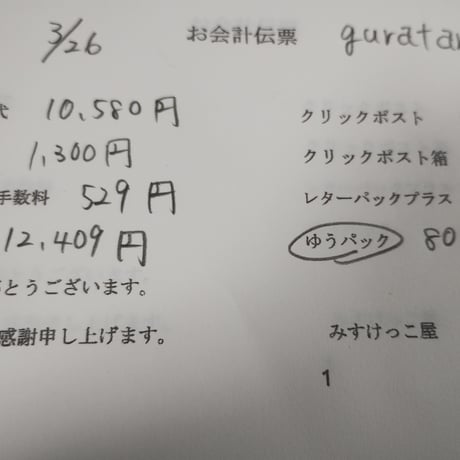 3/26 お会計伝票 guratan
代 10,580円 クリックポスト
1,300円 クリックポスト箱
手数料 529円 レターパックプラス
12,409円 ゆうパック 80
とうございます。
感謝申し上げます。 みすけっこ屋
1